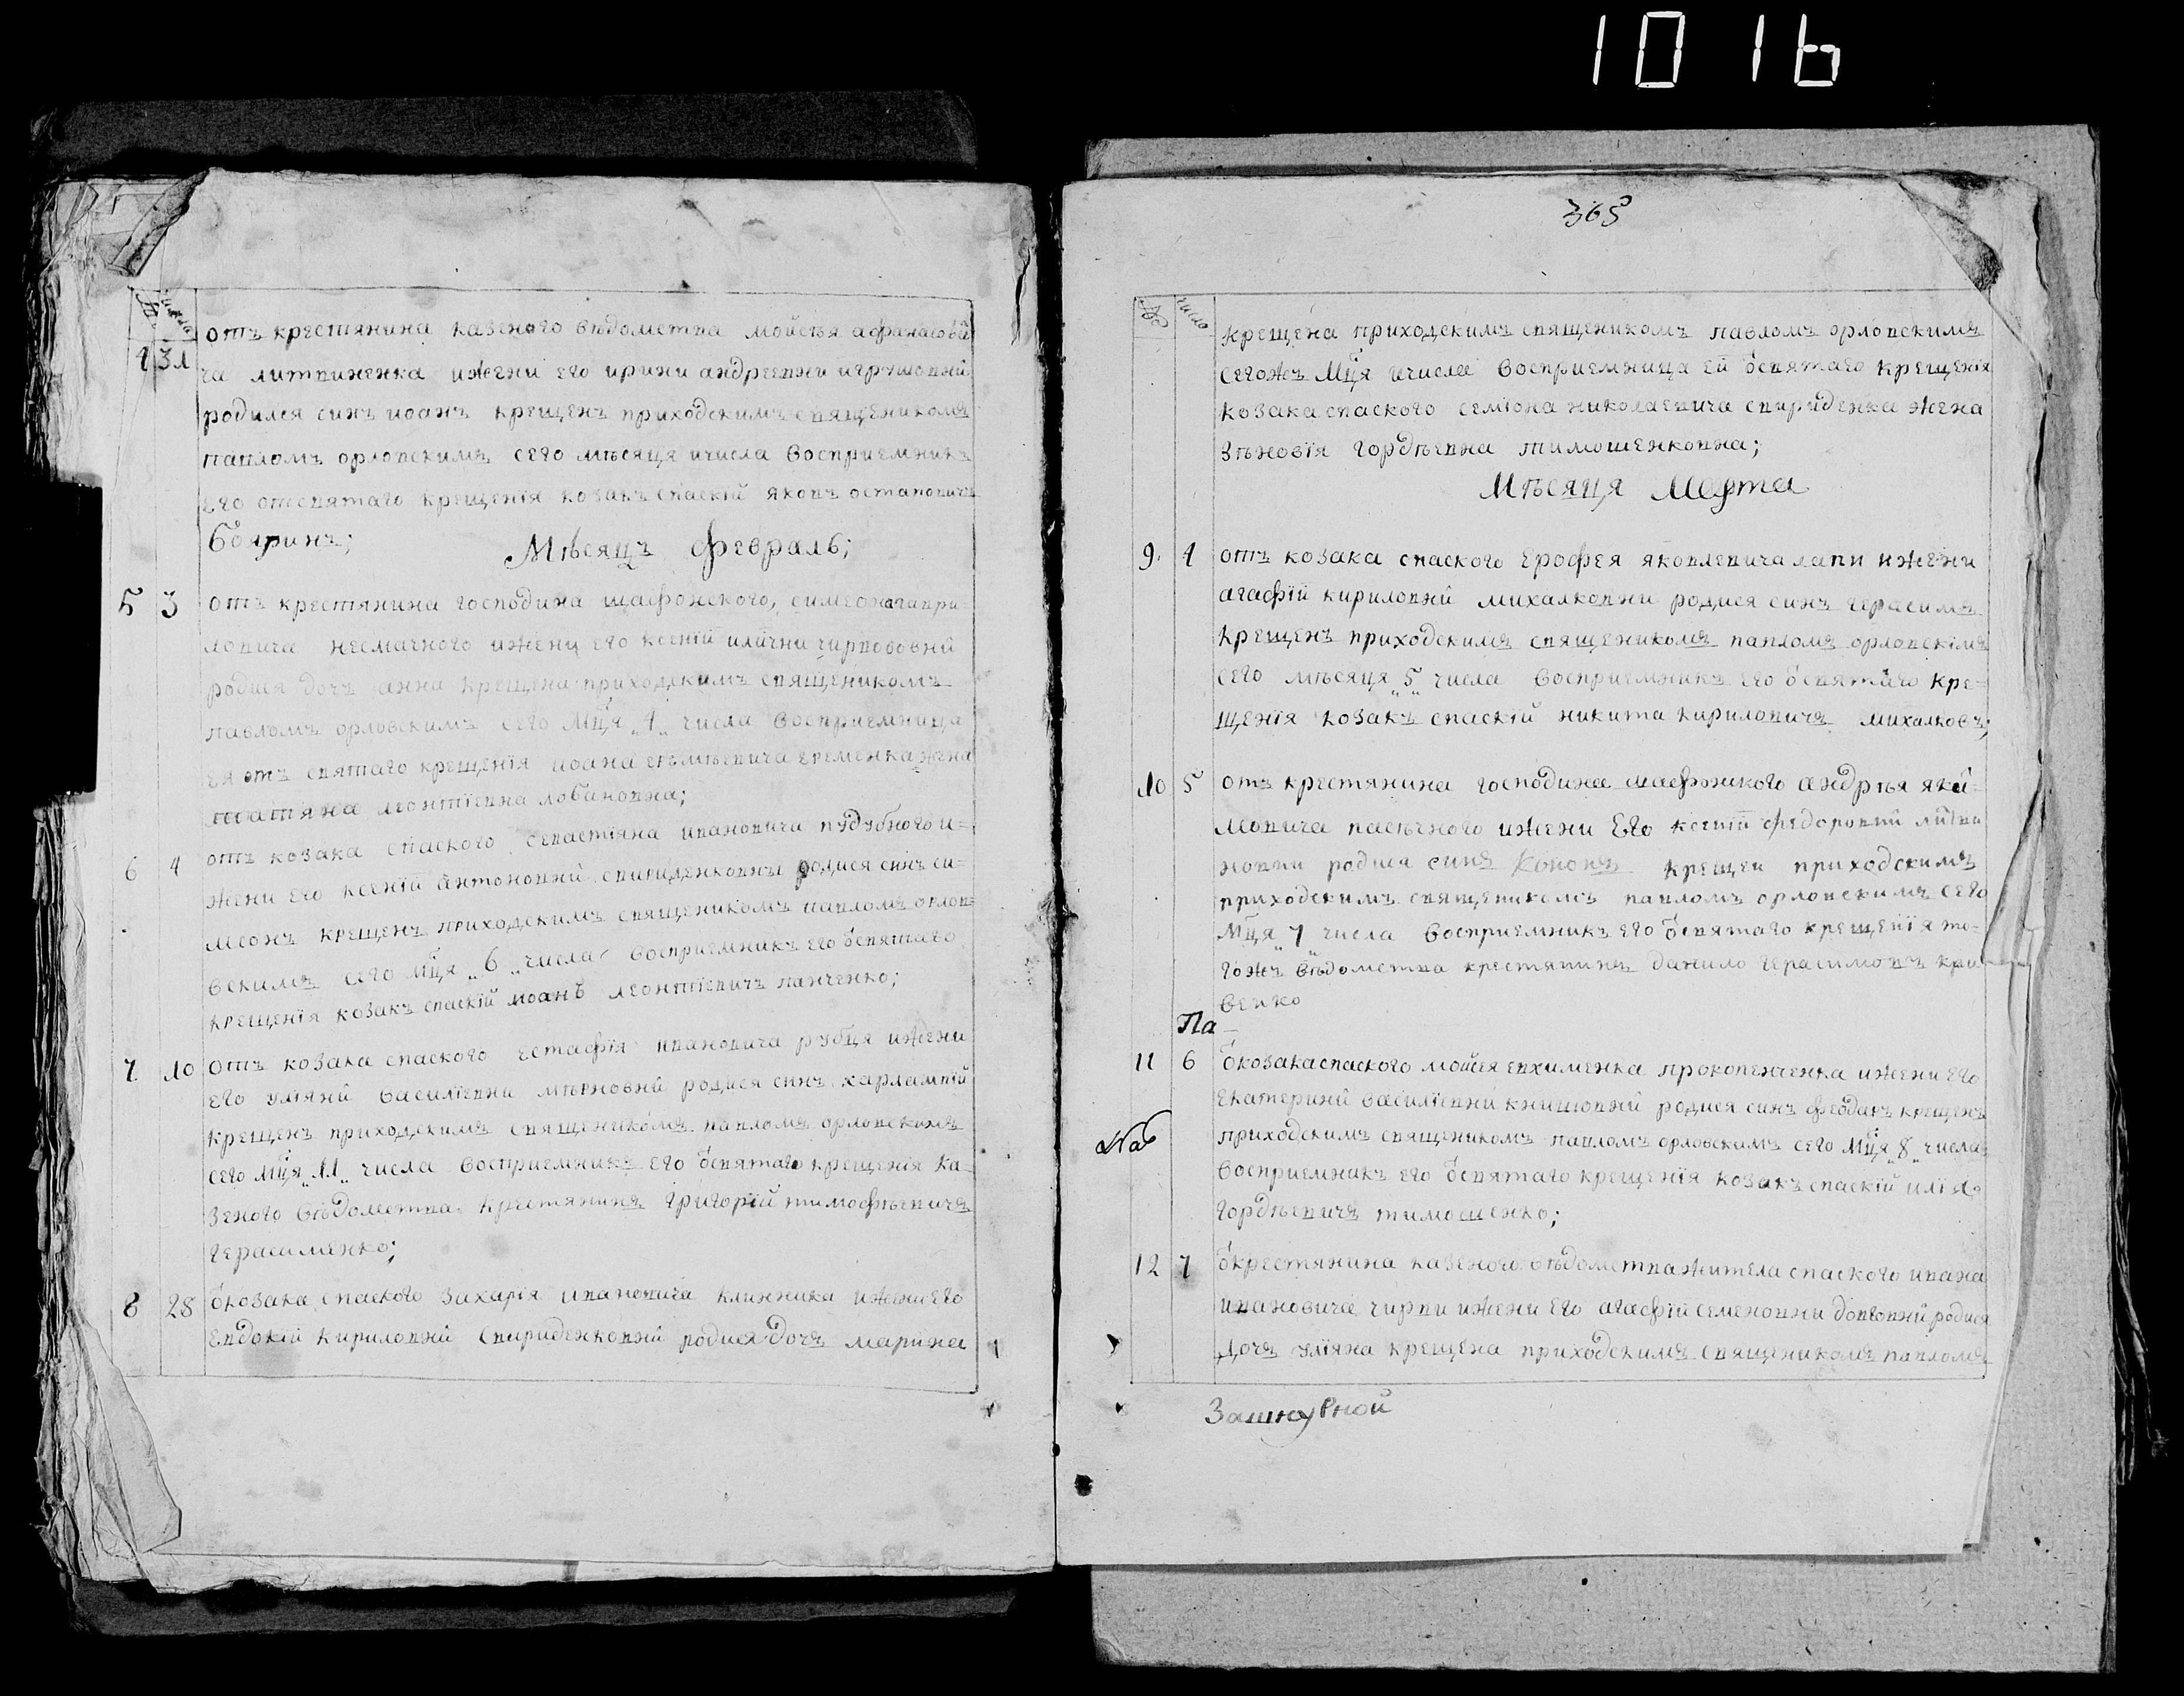 1016
№ число
4 31 отъ крестянина казеного вѣдометпа мойсѣя афанасови
ча литпиненка ижени его ирини андреепни игрушопни
родился синъ иоанъ крещенъ приходскимъ спящеником
паплом орлопскимъ сего мѣсяця ичисла восприемникъ
его отспятаго крещенїя козакъ спаскїй якопъ остапопичъ
бояринъ;
Мѣсяцъ февраль;
5 3 отъ крестянина господина шафонского, симеона гапри=
лопича несмачного ижени его ксении илїчни чирповопни
родися дочъ анна крещена приходскимъ спящеником
павломъ орловскимъ сего Мця „4„ числа восприемница
ея отъ спятаго крещенїя иоана еремѣепича еременка жена
татїяна леонтїепна лобанопна;
6 4 отъ козака спаского сепастїяна ипанопича пудубного и=
жени его ксенїй антонопни спириденкопни родися синъ си=
меонъ крещенъ приходскимъ спящеником паплом орлоп=
вским сего мця „6„ числа восприемникъ его ѿспятаго
крещенїя козакъ спаскїй иоанъ леонтїепичъ панченко;
7 10 отъ козака спаского естафїя ипанопича рубця ижени
его улїяни василїепни мѣрновни родися синъ харлампїй
крещенъ приходскимъ спящеником паплом орлопским
сего мця „11„ числа восприемникъ его ѿспятаго крещенїя ка=
зеного вѣдометпа крестянинъ григорїй тимофѣепичъ
герасименко;
8 28 ѿкозака спаского захарїя ипанопича клинника ижени его
епдокїй кирилопни спириденкопни родися дочъ марина
365
№ число
крещена приходскимъ спящеником павломъ орлопскимъ
сегожъ мця ичисла восприемница ей ѿспятаго крещенїя
козака спаского семїона николаепича спириденка жена
зѣновїя гордѣепна тимошенкопна;
Мѣсяця Марта
9. 4 отъ козака спаского Ерофея якоплепича лапи ижени
агафїй кирилопни михалкопни родися синъ герасимъ
крещенъ приходскимъ спящеником паплом орлопскїмъ
сего мѣсяця „5„ числа восприемникъ его ѿспятаго кре=
щенїя козакъ спаскїй никита кирилопичъ михалковъ;
10 5 отъ крестянина господина шафонского андрѣя яки=
мопича пасѣчного ижени Его ксенїй федоропни литпи
нопни родися синъ Конон крещен приходскимъ
приходскимъ спящеником паплом орлопскимъ сего
мця „7„ числа восприемникъ его ѿспятаго крещенїя то=
гожъ вѣдометпа крестянинъ данило герасимопъ кри
венко
Па
11 6 ѿкозака спаского мойсея епхименка прокопенченка ижени его
екатерини василїепни книшопни родися синъ феоданъ крещенъ
приходскимъ спящеником паплом орловским сего мця „8„ числа
восприемникъ его ѿспятаго крещенїя козакъ спаскїй илїя
гордѣепичъ тимошенко;
12 7 ѿкрестянина казеного вѣдометпа жителя спаского ипана
ипановича чирпи ижени его агафїй семенопни допгопни родися
дочъ улїяна крещена приходскимъ спящеником паплом
Зашнурной